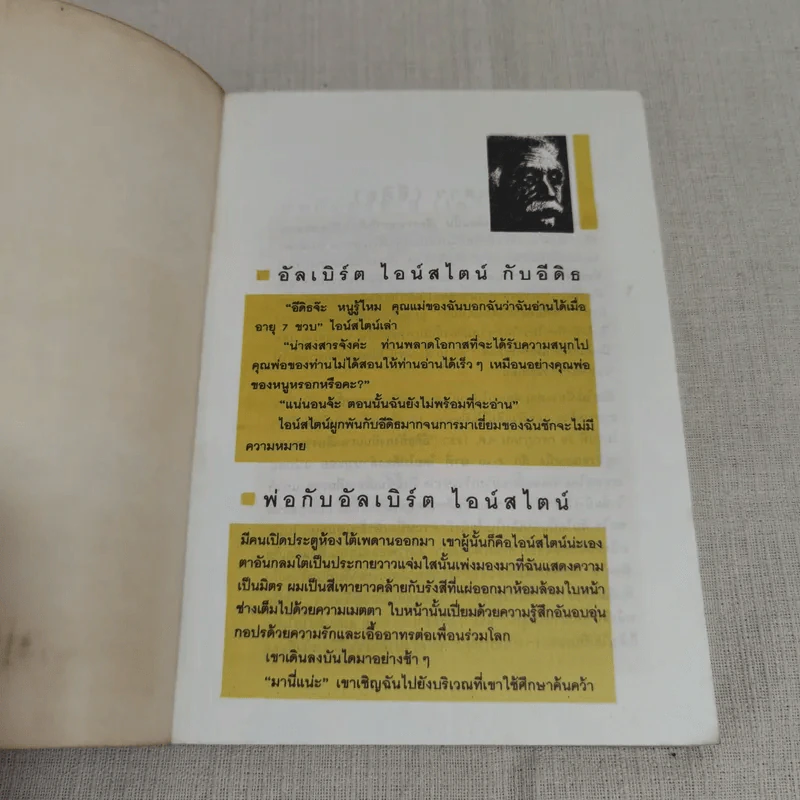 อัลเบิร์ต ไอน์สไตน์ กับอีดิธ
"อีดิธจ๊ะ หนูรู้ไหม คุณแม่ของฉันบอกฉันว่าฉันอ่านได้เมื่อ
อายุ 7 ขวบ" ไอน์สไตน์เล่า
"น่าสงสารจังค่ะ ท่านพลาดโอกาสที่จะได้รับความสนุกไป
คุณพ่อของท่านไม่ได้สอนให้ท่านอ่านได้เร็ว ๆ เหมือนอย่างคุณพ่อ
ของหนูหรอกหรือคะ?"
"แน่นอนจ้ะ ตอนนั้นฉันยังไม่พร้อมที่จะอ่าน"
ไอน์สไตน์ผูกพันกับอีดิธมากจนการมาเยี่ยมของฉันชักจะไม่มี
ความหมาย
พ่อกับอัลเบิร์ต ไอน์สไตน์
มีคนเปิดประตูห้องใต้เพดานออกมา เขาผู้นั้นก็คือไอน์สไตน์น่ะเอง
ตาอันกลมโตเป็นประกายวาวแจ่มใสนั้นเพ่งมองมาที่ฉันแสดงความ
เป็นมิตร ผมเป็นสีเทายาวคล้ายกับรังสีที่แผ่ออกมาห้อมล้อมใบหน้า
ช่างเต็มไปด้วยความเมตตา ใบหน้านั้นเปี่ยมด้วยความรู้สึกอันอบอุ่น
กอปรด้วยความรักและเอื้ออาทรต่อเพื่อนร่วมโลก
เขาเดินลงบันไดมาอย่างช้า ๆ
"มานี่แน่ะ" เขาเชิญฉันไปยังบริเวณที่เขาใช้ศึกษาค้นคว้า